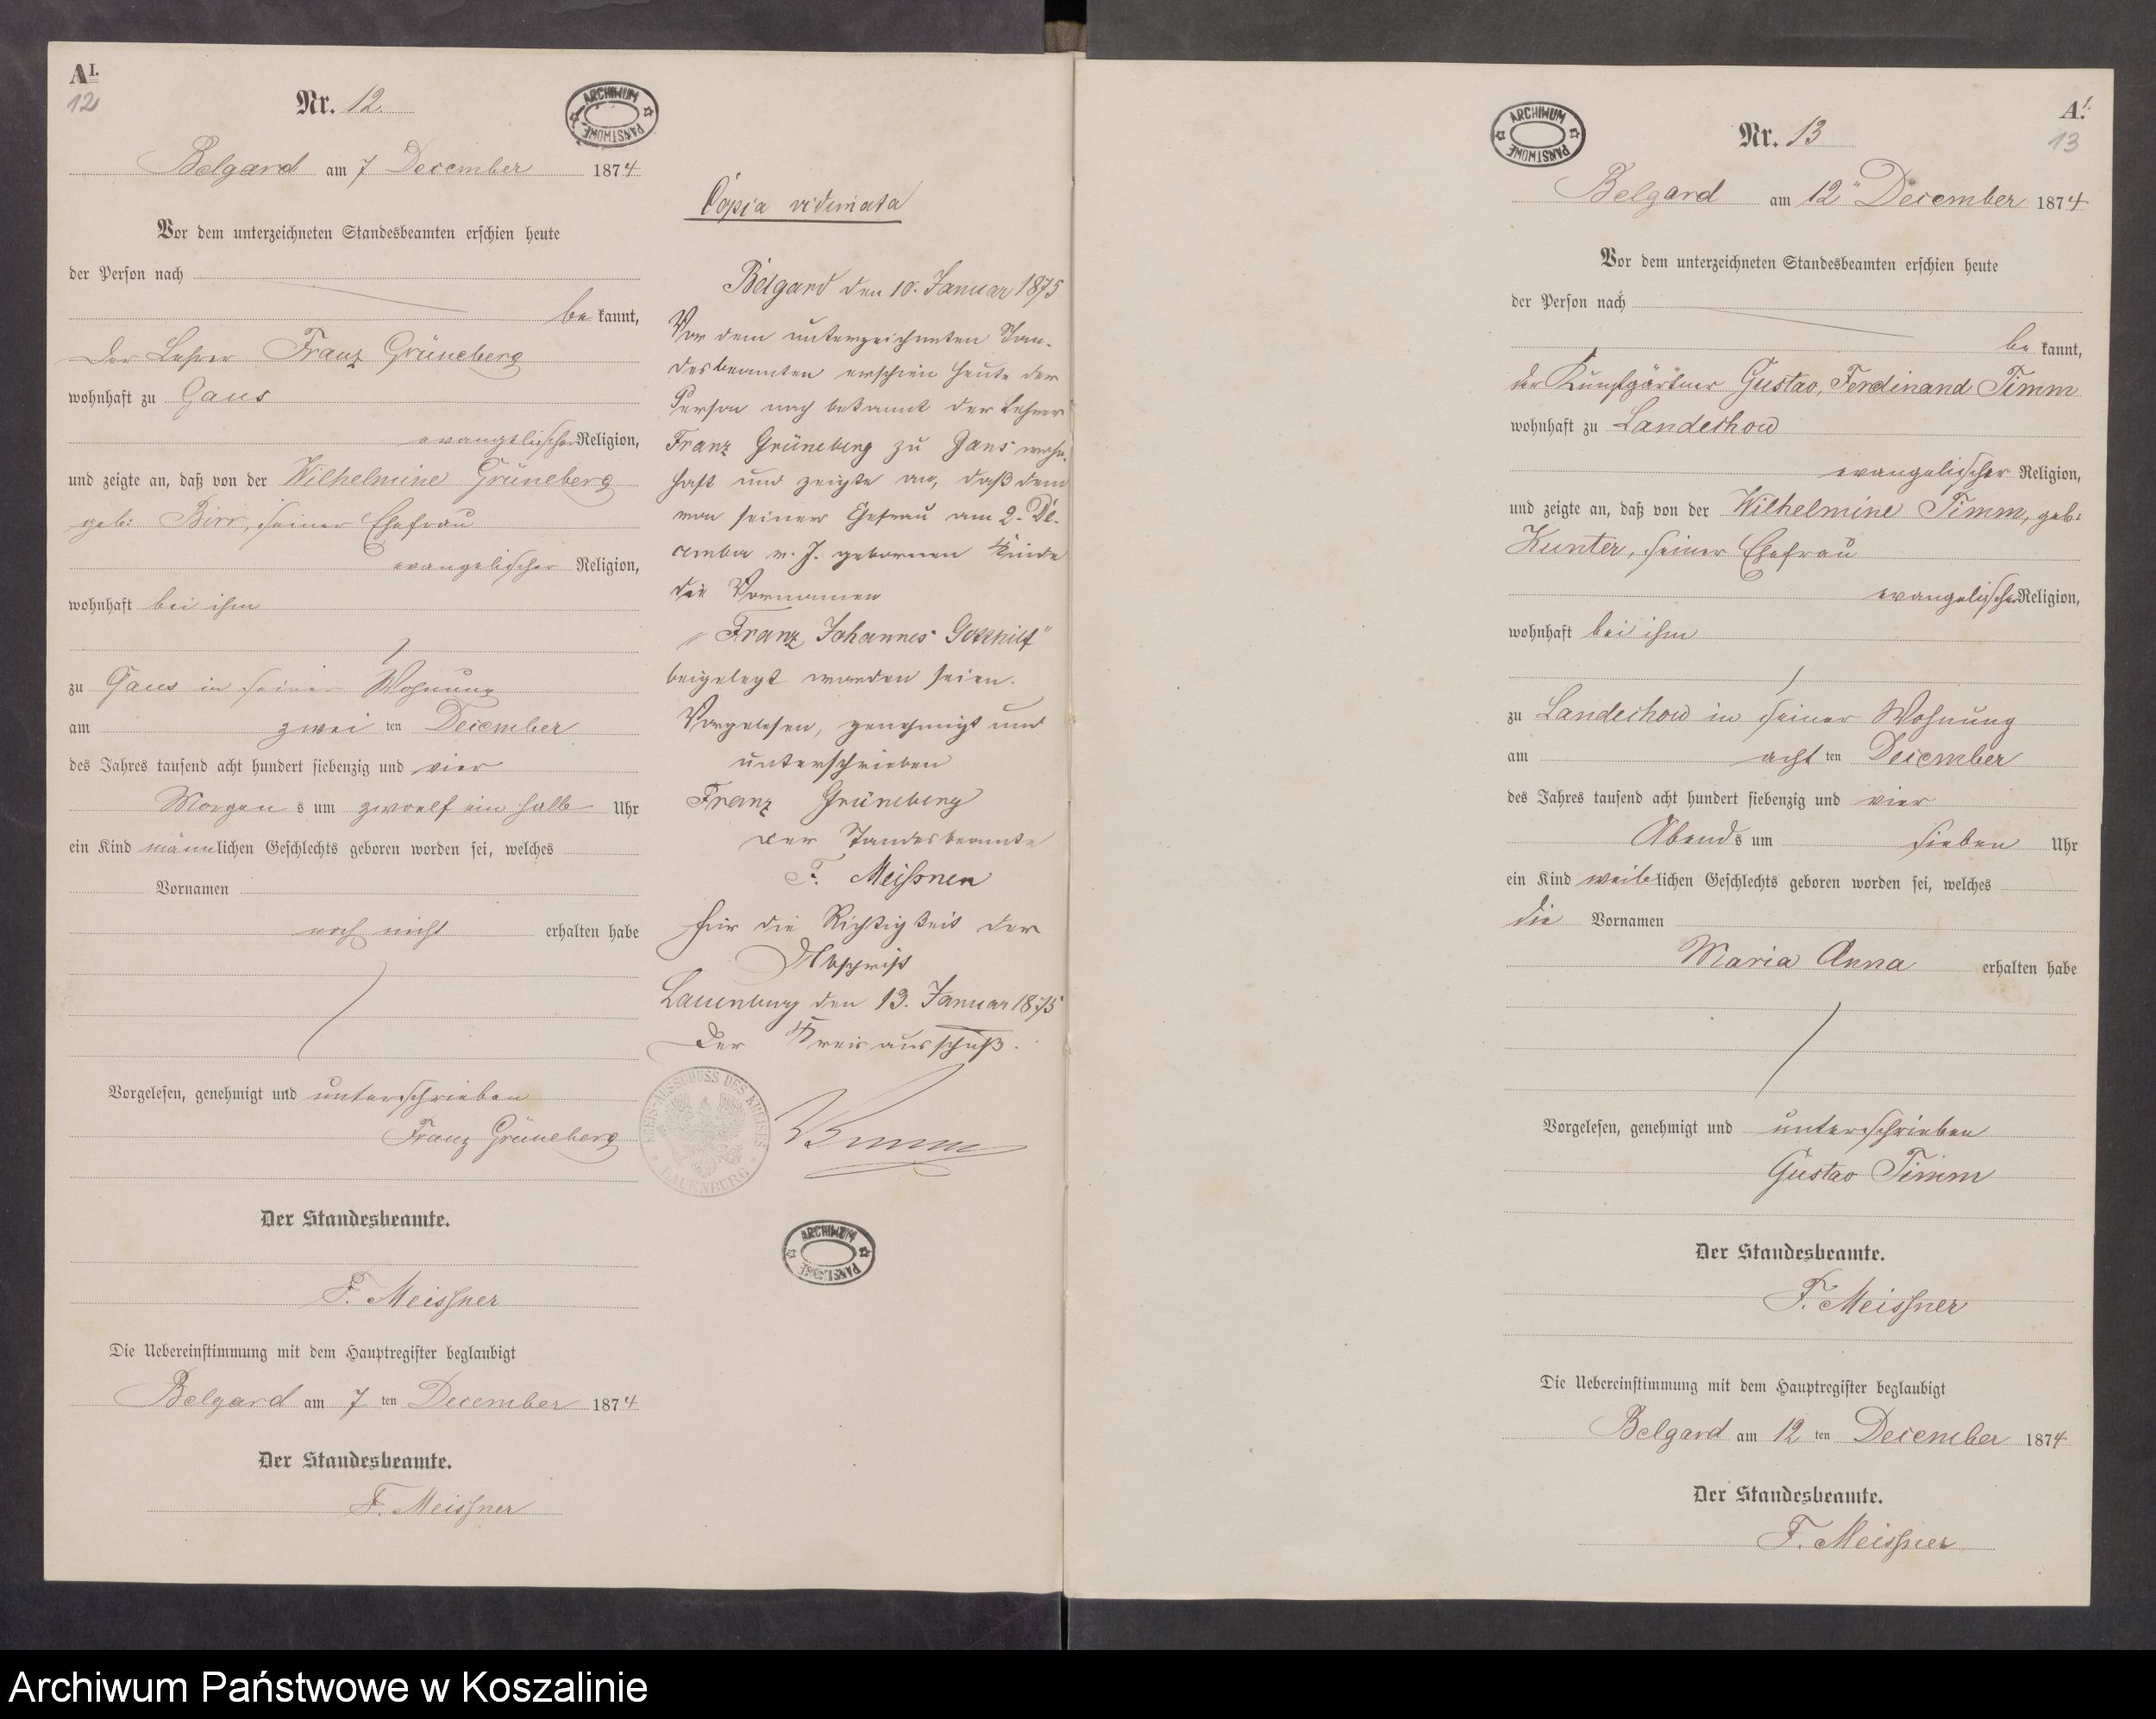 A I.
12
Nr. 12.
ARCHIWUM PAŃSTWOWE
Belgard am 7 December 1874
Vor dem unterzeichneten Standesbeamten erschien heute
der Person nach
be kannt,
Der Lehrer Franz Grüneberg
wohnhaft zu Gans
evangelischer Religion,
und zeigte an, daß von der Wilhelmine Grüneberg
geb: Birr, seiner Ehefrau
evangelischer Religion,
wohnhaft bei ihm
zu Gans in seiner Wohnung
am zwei ten December
des Jahres tausend acht hundert siebenzig und vier
Morgen s um zwoelf ein halb Uhr
ein Kind männlichen Geschlechts geboren worden sei, welches
Vornamen
noch nicht erhalten habe
Vorgelesen, genehmigt und unterschrieben
Franz Grüneberg
Der Standesbeamte.
F. Meissner
Die Uebereinstimmung mit dem Hauptregister beglaubigt
Belgard am 7 ten December 1874
Der Standesbeamte.
F. Meissner
Copia vidimata
Belgard den 10. Januar 1875
Vor dem unterzeichneten Stan-
desbeamten erschien heute der
Person nach bekannt der Lehrer
Franz Grüneberg zu Gans wohn-
haft und zeigte an, daß dem
von seiner Ehefrau am 2. De-
cember v. J. gebornen Kinde
die Vornamen
„Franz Johannes Gotthilf"
beigelegt worden seien.
Vorgelesen, genehmigt und
unterschrieben
Franz Grüneberg
Der Standesbeamte
F. Meißner
Für die Richtigkeit der
Abschrift
Lauenburg den 13. Januar 1875
Der Kreisausschuß.
KREIS-AUSSCHUSS DES KREISES LAUENBURG
ARCHIWUM PAŃSTWOWE
ARCHIWUM PAŃSTWOWE
A I.
13
Nr. 13
Belgard am 12" December 1874
Vor dem unterzeichneten Standesbeamten erschien heute
der Person nach
be kannt,
der Kunstgärtner Gustav, Ferdinand Timm
wohnhaft zu Landechow
evangelischer Religion,
und zeigte an, daß von der Wilhelmine Timm, geb:
Kunter, seiner Ehefrau
evangelischer Religion,
wohnhaft bei ihm
zu Landechow in seiner Wohnung
am acht ten December
des Jahres tausend acht hundert siebenzig und vier
Abends um sieben Uhr
ein Kind weiblichen Geschlechts geboren worden sei, welches
die Vornamen
Maria Anna erhalten habe
Vorgelesen, genehmigt und unterschrieben
Gustav Timm
Der Standesbeamte.
F. Meissner
Die Uebereinstimmung mit dem Hauptregister beglaubigt
Belgard am 12 ten December 1874
Der Standesbeamte.
F. Meissner
Archiwum Państwowe w Koszalinie